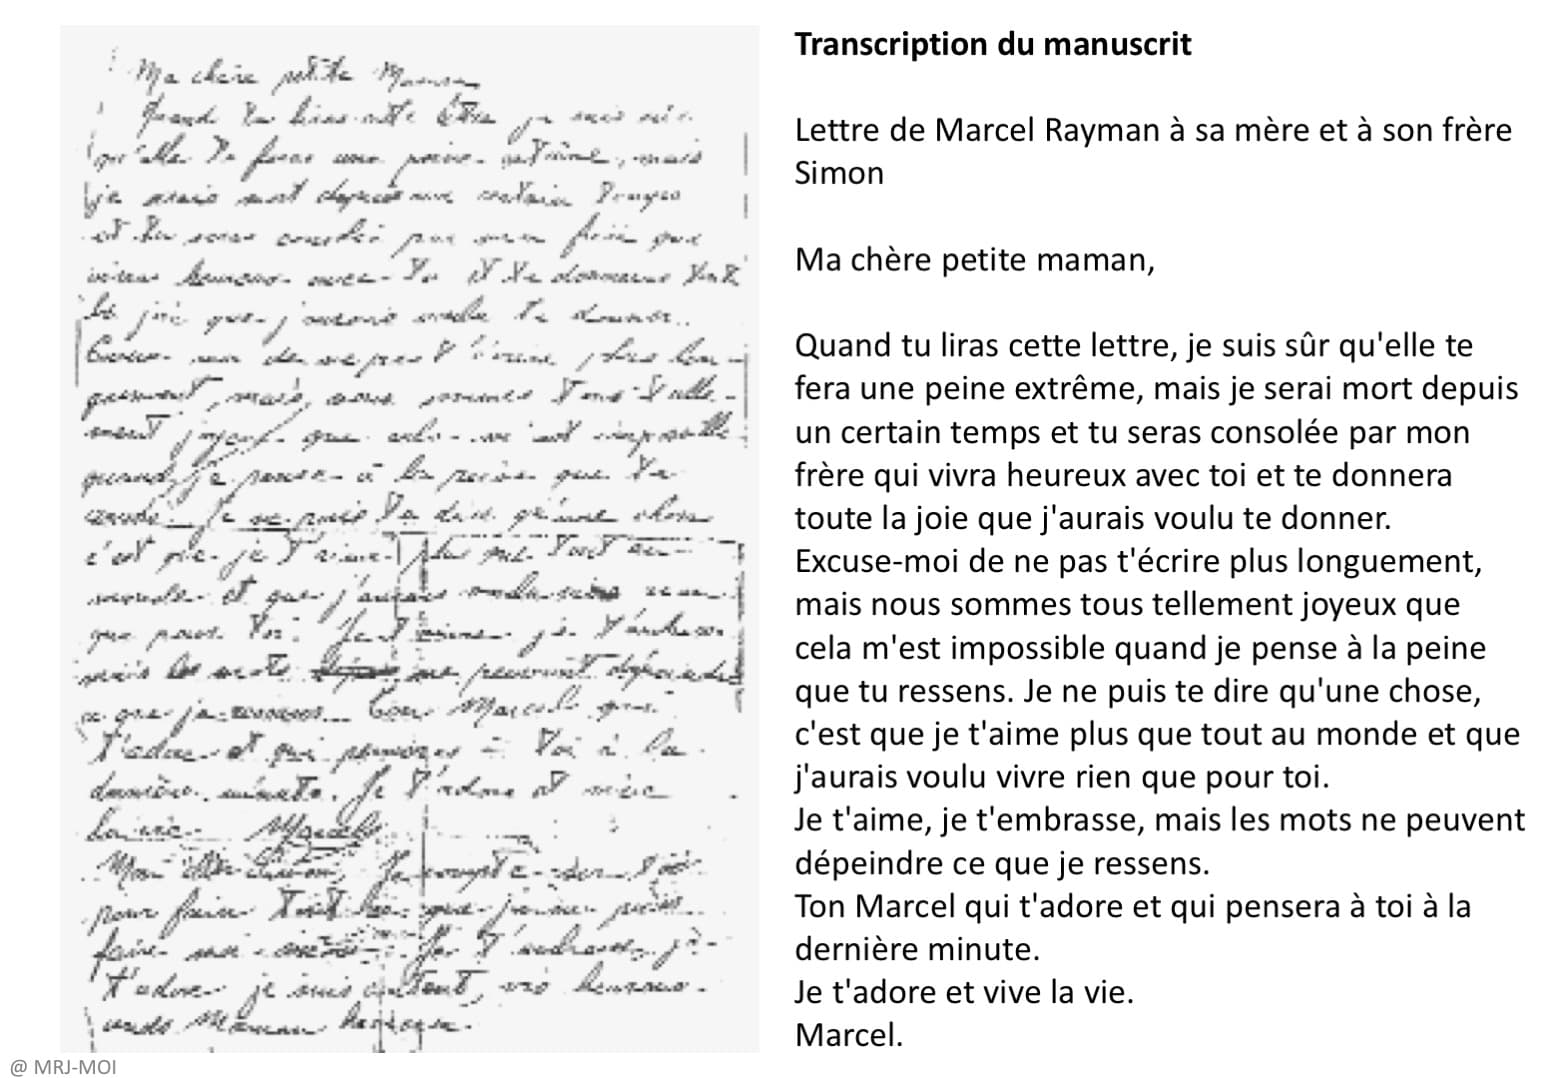 Ma chère petite Maman
Quand tu liras cette lettre je suis sûr
qu'elle te feras une peine extrême, mais
je serais mort depuis un certain temps
et tu seras consolée par mon frère qui
vivras heureux avec toi et te donneras toute
la joie que j'aurais voulu te donner.
Excuse moi de ne pas t'écrire plus lon-
guement, mais nous sommes tous telle-
ment joyeux que cela m'est impossible
quand je pense à la peine que tu
Je ne puis te dire qu'une chose
c'est que je t'aime plus que tout au
monde et que j'aurais voulu vivre rien
que pour toi. Je t'aime je t'embrasse
mais les mots ne peuvent dépeindre
ce que je ressens. Ton Marcel qui
t'adore et qui penseras à toi à la
dernière minute. Je t'adore et vive
la vie. Marcel
Mon cher Simon, Je compte sur toi
pour faire tout que je ne puis
faire moi Je t'embrasse, je
t'adore je suis content, vis heureux
Maman
Transcription du manuscrit
Lettre de Marcel Rayman à sa mère et à son frère
Simon
Ma chère petite maman,
Quand tu liras cette lettre, je suis sûr qu'elle te
fera une peine extrême, mais je serai mort depuis
un certain temps et tu seras consolée par mon
frère qui vivra heureux avec toi et te donnera
toute la joie que j'aurais voulu te donner.
Excuse-moi de ne pas t'écrire plus longuement,
mais nous sommes tous tellement joyeux que
cela m'est impossible quand je pense à la peine
que tu ressens. Je ne puis te dire qu'une chose,
c'est que je t'aime plus que tout au monde et que
j'aurais voulu vivre rien que pour toi.
Je t'aime, je t'embrasse, mais les mots ne peuvent
dépeindre ce que je ressens.
Ton Marcel qui t'adore et qui pensera à toi à la
dernière minute.
Je t'adore et vive la vie.
Marcel.
@ MRJ-MOI